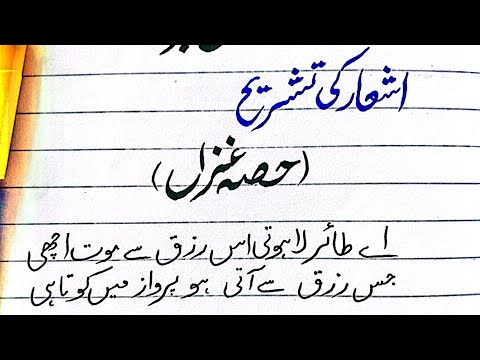 اشعار کی تشریح
(حصہ غزل)
اے طائر لاہوتی اس رزق سے موت اچھی
جس رزق سے آتی ہو پرواز میں کوتاہی